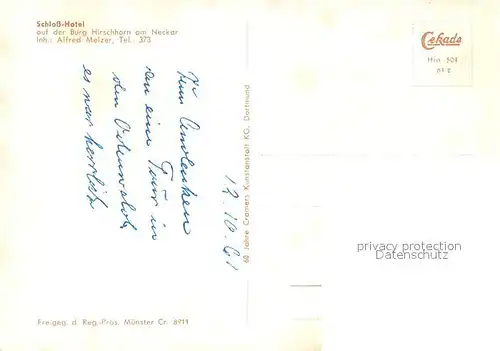 Schloß-Hotel
auf der Burg Hirschhorn am Neckar
Inh.: Alfred Melzer, Tel. 373
Cekade
Hirn 504
Zum Andenken
an eine Tour in
den Odenwald,
es war herrlich
12.10.61
60 Jahre Cramers Kunstanstalt KG, Dortmund
privacy protection
Datenschutz
Freigeg. d. Reg.-Präs. Münster Cr. 8911